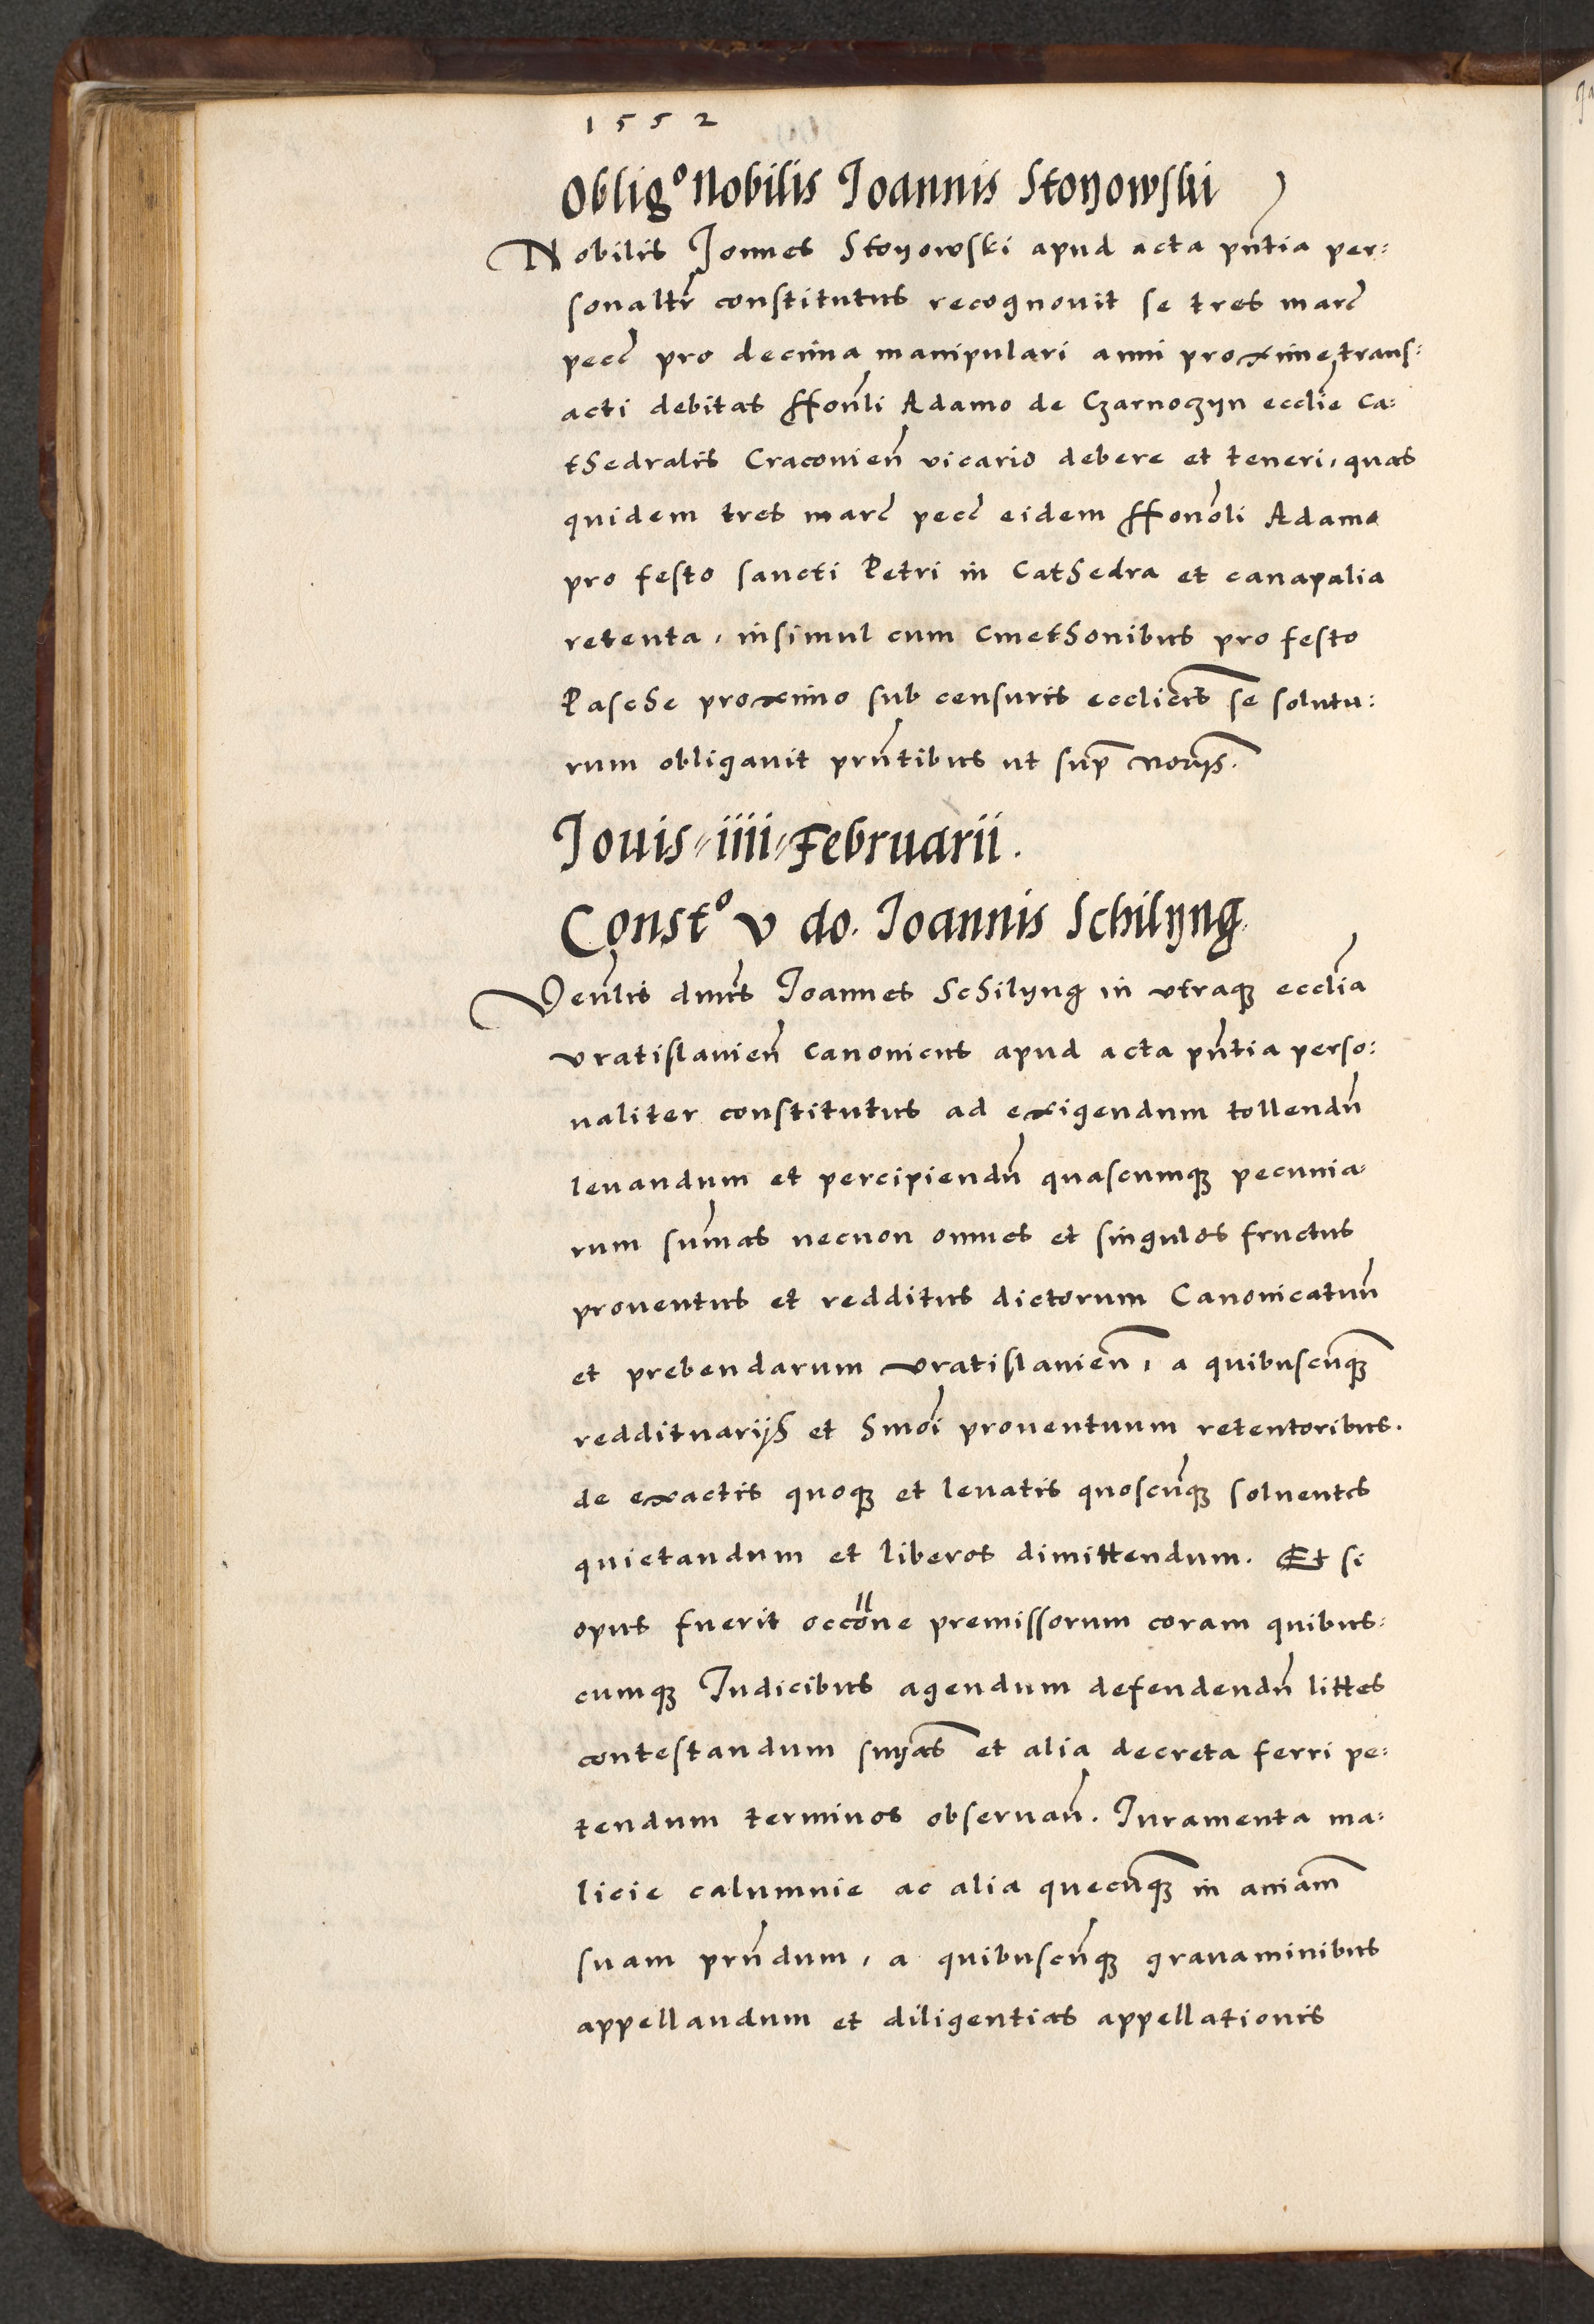 1552
Oblig° Nobilis Joannis Stoyowski
Nobilis Joannes Stoyowski apud acta pntia per:
sonaltr constitutus recognovit se tres marc
pecc pro decima manipulari anni proxime trans:
acti debitas Honli Adamo de Czarnoczyn ecclie Ca:
thedralis Cracovien vicario debere et teneri, quas
quidem tres marc pecc eidem Honoli Adamo
pro festo sancti Petri in Cathedra et canapalia
retenta, insimul cum Cmethonibus pro festo
Pasche proximo sub censuris ecclicis se solutu:
rum obligavit prntibus ut sup noriis.
Jouis iiii Februarii.
Const° v do. Joannis Schilyng
Venlis dnus Joannes Schilyng in utraq ecclia
vratislavien canonicus apud acta pntia perso:
naliter constitutus ad exigendum tollendn
levandum et percipiendn quascumq pecunia:
rum sumas necnon omnes et singulos fructus
proventus et redditus dictorum Canonicatuu
et prebendarum vratislavien, a quibuscunq
reddituariis et hmoi proventuum retentoribus.
de exactis quoq et levatis quoscunq solventes
quietandum et liberos dimittendum. Et si
opus fuerit occone premissorum coram quibus:
cumq Judicibus agendum defendendn littes
contestandum snias et alia decreta ferri pe:
tendum terminos observan. Juramenta ma:
licie calumnie ac alia quecunq in aniam
suam prndum, a quibuscunq gravaminibus
appellandum et diligentias appellationis